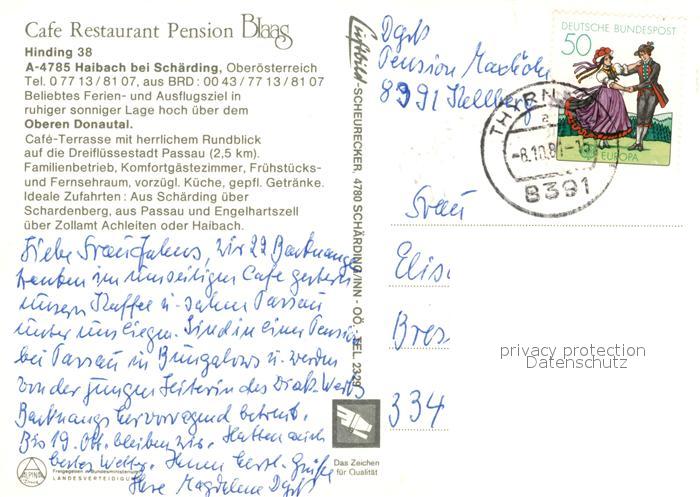 Cafe Restaurant Pension Blaas
Hinding 38
A-4785 Haibach bei Schärding, Oberösterreich
Tel. 0 77 13 / 81 07, aus BRD : 00 43 / 77 13 / 81 07
Beliebtes Ferien- und Ausflugsziel in
ruhiger sonniger Lage hoch über dem
Oberen Donautal.
Café-Terrasse mit herrlichem Rundblick
auf die Dreiflüssestadt Passau (2,5 km).
Familienbetrieb, Komfortgästezimmer, Frühstücks-
und Fernsehraum, vorzügl. Küche, gepfl. Getränke.
Ideale Zufahrten : Aus Schärding über
Schardenberg, aus Passau und Engelhartszell
über Zollamt Achleiten oder Haibach.
Liebe Frau Jahns, wir 22 Backnanger
tranken im umseitigen Cafe gestern
unsern Kaffee u. sahen Passau
unter uns liegen. Sind in einer Pension
bei Passau in Bungalows u. werden
von der jungen Leiterin des Diak. Werks
Backnangs hervorragend betreut.
Bis 19. Okt. bleiben wir. Hatten auch
bestes Wetter. Ihnen herzl. Grüße
Ihre Magdalene
ALPINE
Freigegeben v. Bundesministerium f.
LANDESVERTEIDIGUNG
Luftbild-SCHEURECKER, 4780 SCHÄRDING/INN - OÖ. TEL. 2329
Das Zeichen
für Qualität
Pension
8391 Kellberg
DEUTSCHE BUNDESPOST
50
EUROPA
THYRN
a
-8.10.81-15
8391
Frau
Elis
Bres
334
privacy protection
Datenschutz